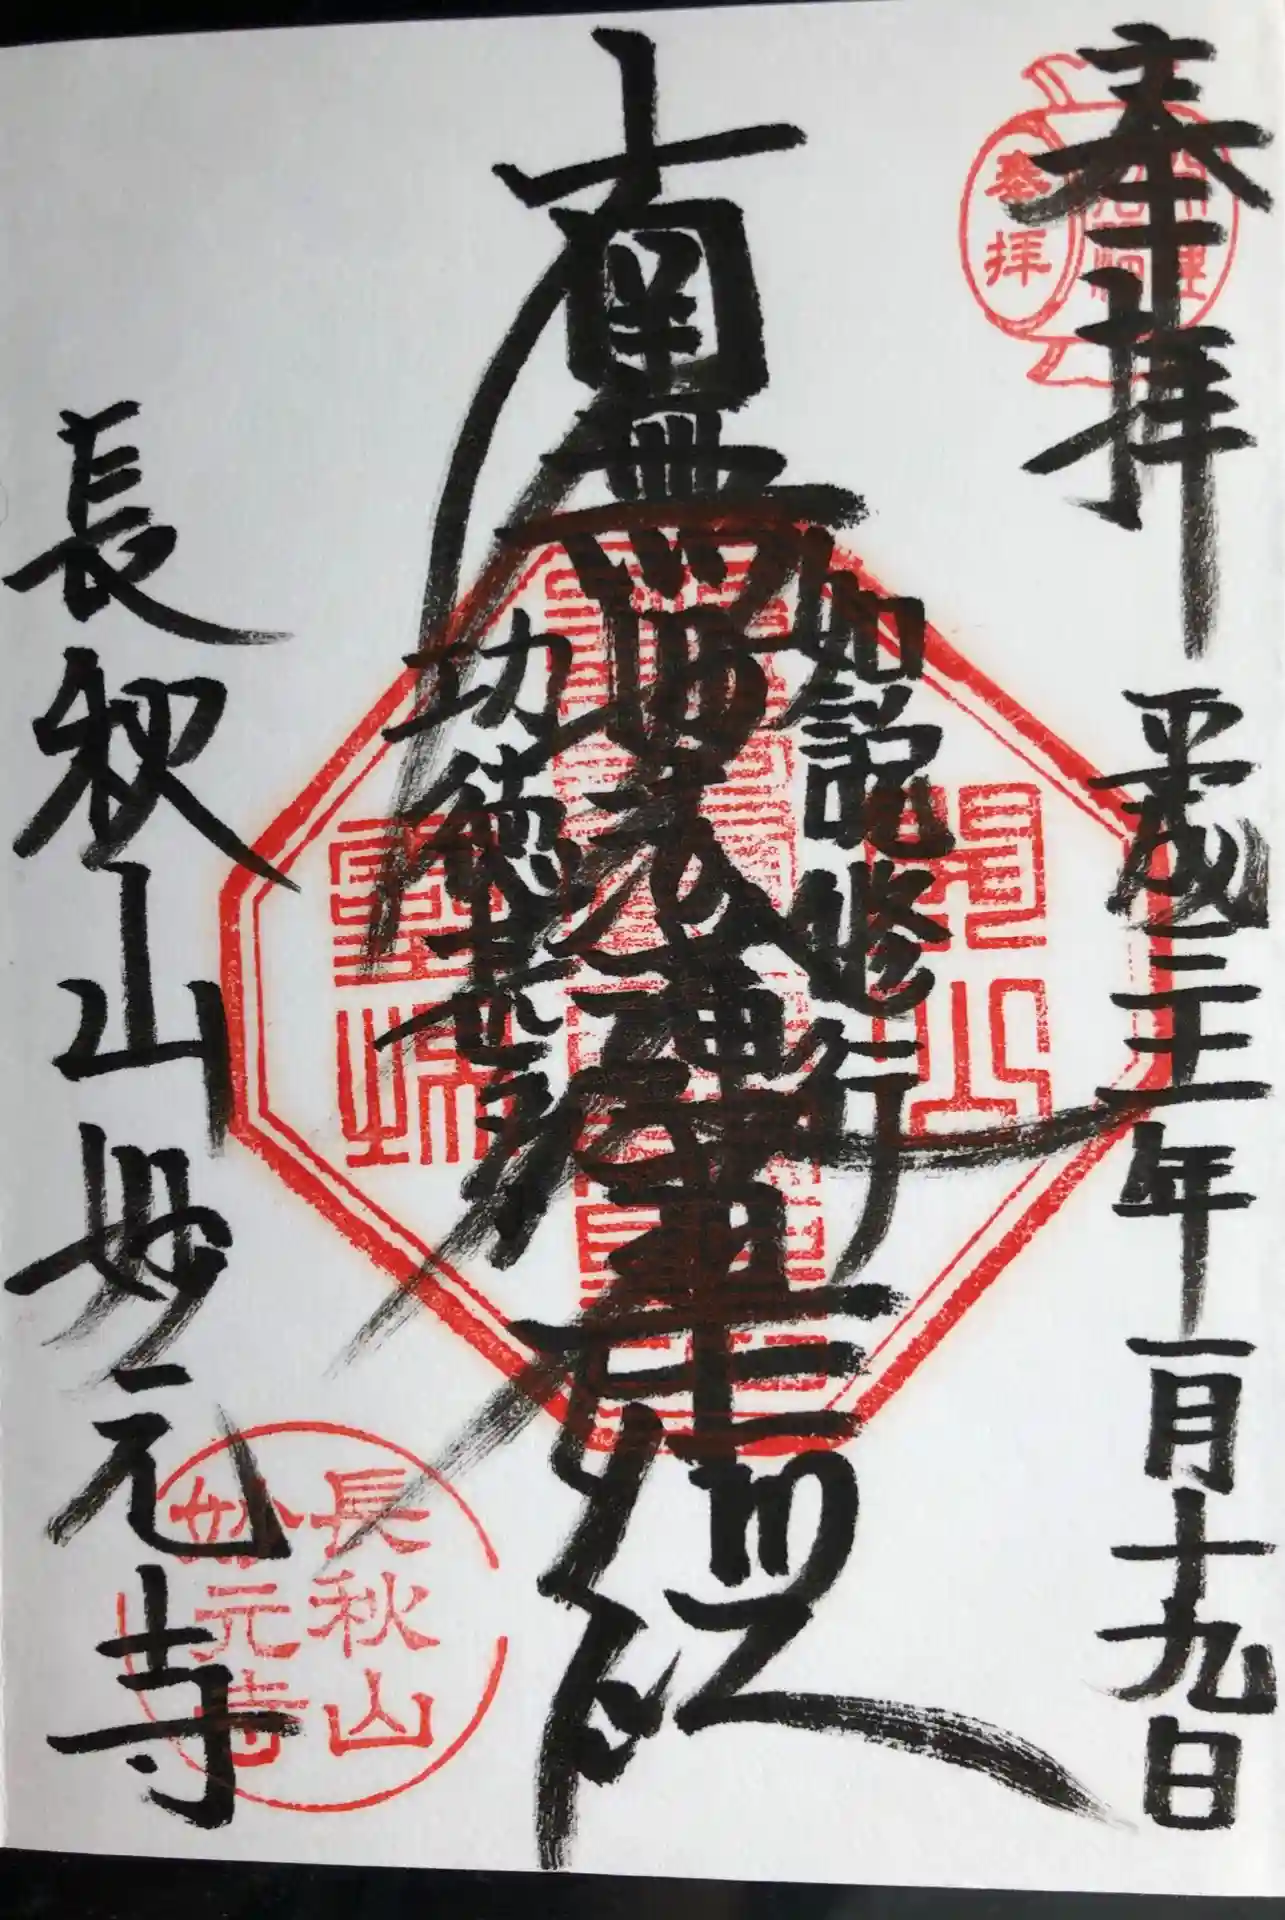 奉拝
平成三十一年一月十九日
如説修行
南無妙法蓮華経
功徳甚深
長秋山妙元寺
奉拝
開山
霊場
長秋山
妙元寺